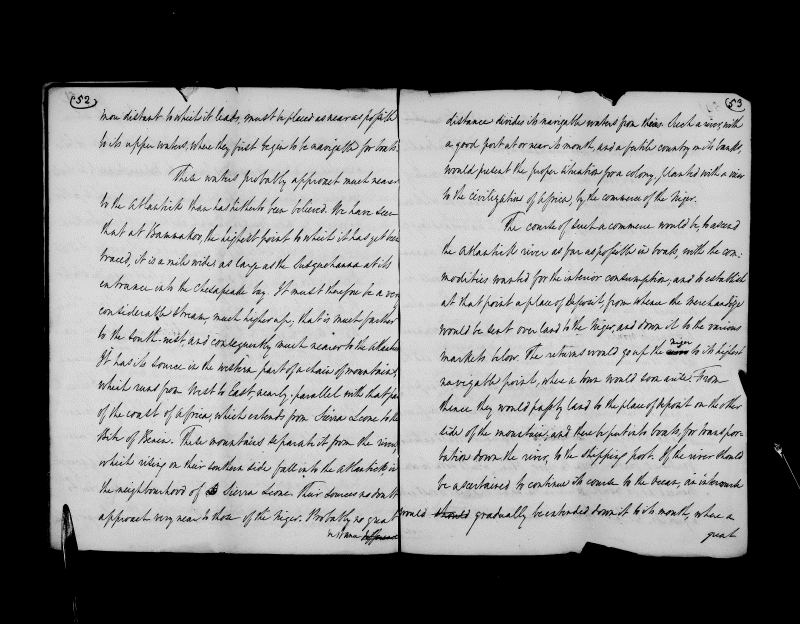 52
more distant to which it leads, must be placed as near as possible
to its upper waters, where they first begin to be navigable for boats.
These waters probably approach much nearer
to the Atlantick than has hitherto been believed. We have seen
that at Bammakoo, the highest point to which it has yet been
traced, it is a mile wide; as large as the Susquehanna at its
entrance into the Chesapeake bay. It must therefore be a very
considerable stream, much higher up; that is much farther
to the south-west, and consequently much nearer to the Atlantick
It has its source in the western part of a chain of mountains,
which runs from West to East, nearly parallel with that part
of the coast of Africa, which extends from Sierra Leone to the
Bite of Benin. These mountains separate it from the rivers,
which rising on their southern side fall into the Atlantick in
the neighbourhood of Sierra Leone. Their sources no doubt
approach very near to those of the Niger. Probably no great
distance
53
distance divides its navigable waters from theirs. Such a river, with
a good port at or near its mouth, and a fertile country on its banks,
would present the proper situation for a colony, planted with a view
to the civilization of Africa, by the commerce of the Niger.
The course of such a commerce would be, to ascend
the Atlantick river as far as possible in boats, with the com-
modities wanted for the interior consumption, and to establish
at that point a place of deposit, from whence the merchandize
would be sent over land to the Niger, and down it to the various
markets below. The returns would go up the niger to its highest
navigable point, where a town would soon arise. From
thence they would pass by land to the place of deposit on the other
side of the mountains, and there be put into boats, for transpor-
tation down the river, to the shipping port. If the river should
be ascertained to continue its course to the Ocean, an intercourse
would should gradually be extended down it to its mouth, where a
great